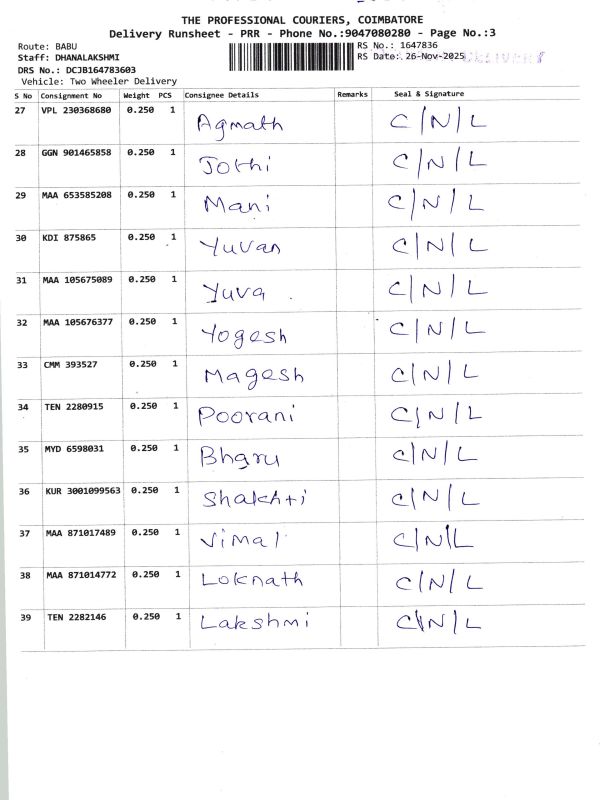 THE PROFESSIONAL COURIERS, COIMBATORE
Delivery Runsheet - PRR - Phone No.:9047080280 - Page No.:3
Route: BABU RS No.: 1647836
Staff: DHANALAKSHMI RS Date: 26-Nov-2025 DELIVERY
DRS No.: DCJB164783603
Vehicle: Two Wheeler Delivery
S No Consignment No Weight PCS Consignee Details Remarks Seal & Signature
27 VPL 230368680 0.250 1 Agmath C/N/L
28 GGN 901465858 0.250 1 Jothi C/N/L
29 MAA 653585208 0.250 1 Mani C/N/L
30 KDI 875865 0.250 1 Yuvan C/N/L
31 MAA 105675089 0.250 1 Yuva C/N/L
32 MAA 105676377 0.250 1 Yogesh C/N/L
33 CMM 393527 0.250 1 Magesh C/N/L
34 TEN 2280915 0.250 1 Poorani C/N/L
35 MYD 6598031 0.250 1 Bharu C/N/L
36 KUR 3001099563 0.250 1 Shakhti C/N/L
37 MAA 871017489 0.250 1 Vimal C/N/L
38 MAA 871014772 0.250 1 Loknath C/N/L
39 TEN 2282146 0.250 1 Lakshmi C/N/L